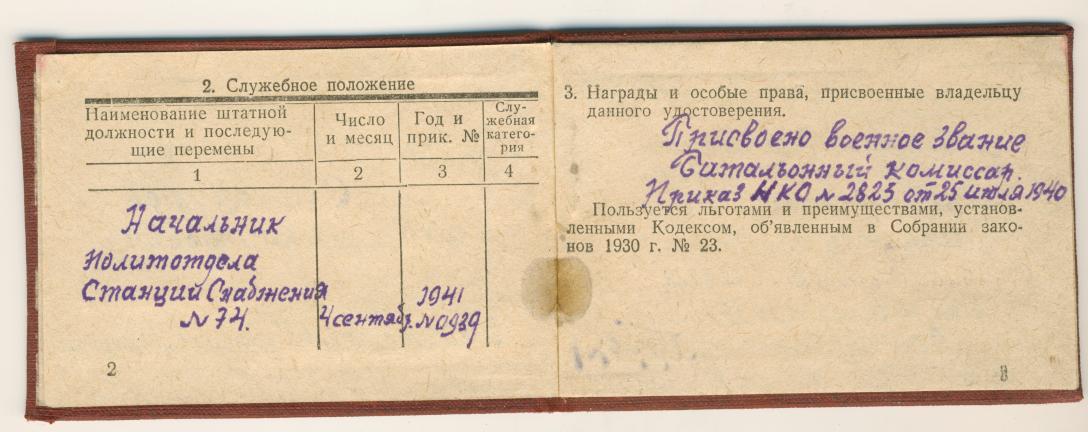 2. Служебное положение
Наименование штатной
должности и последую-
щие перемены
Число
и месяц
Год и
прик. №
Слу-
жебная
катего-
рия
1
2
3
4
Начальник
Политотдела
Станции Снабжения
№ 74.
4 сентябр.
1941
№ 0939
2
3. Награды и особые права, присвоенные владельцу
данного удостоверения.
Присвоено военное звание
Батальонный комиссар.
Приказ НКО № 2823 от 25 июля 1940
Пользуется льготами и преимуществами, установ-
ленными Кодексом, об'явленным в Собрании зако-
нов 1930 г. № 23.
3